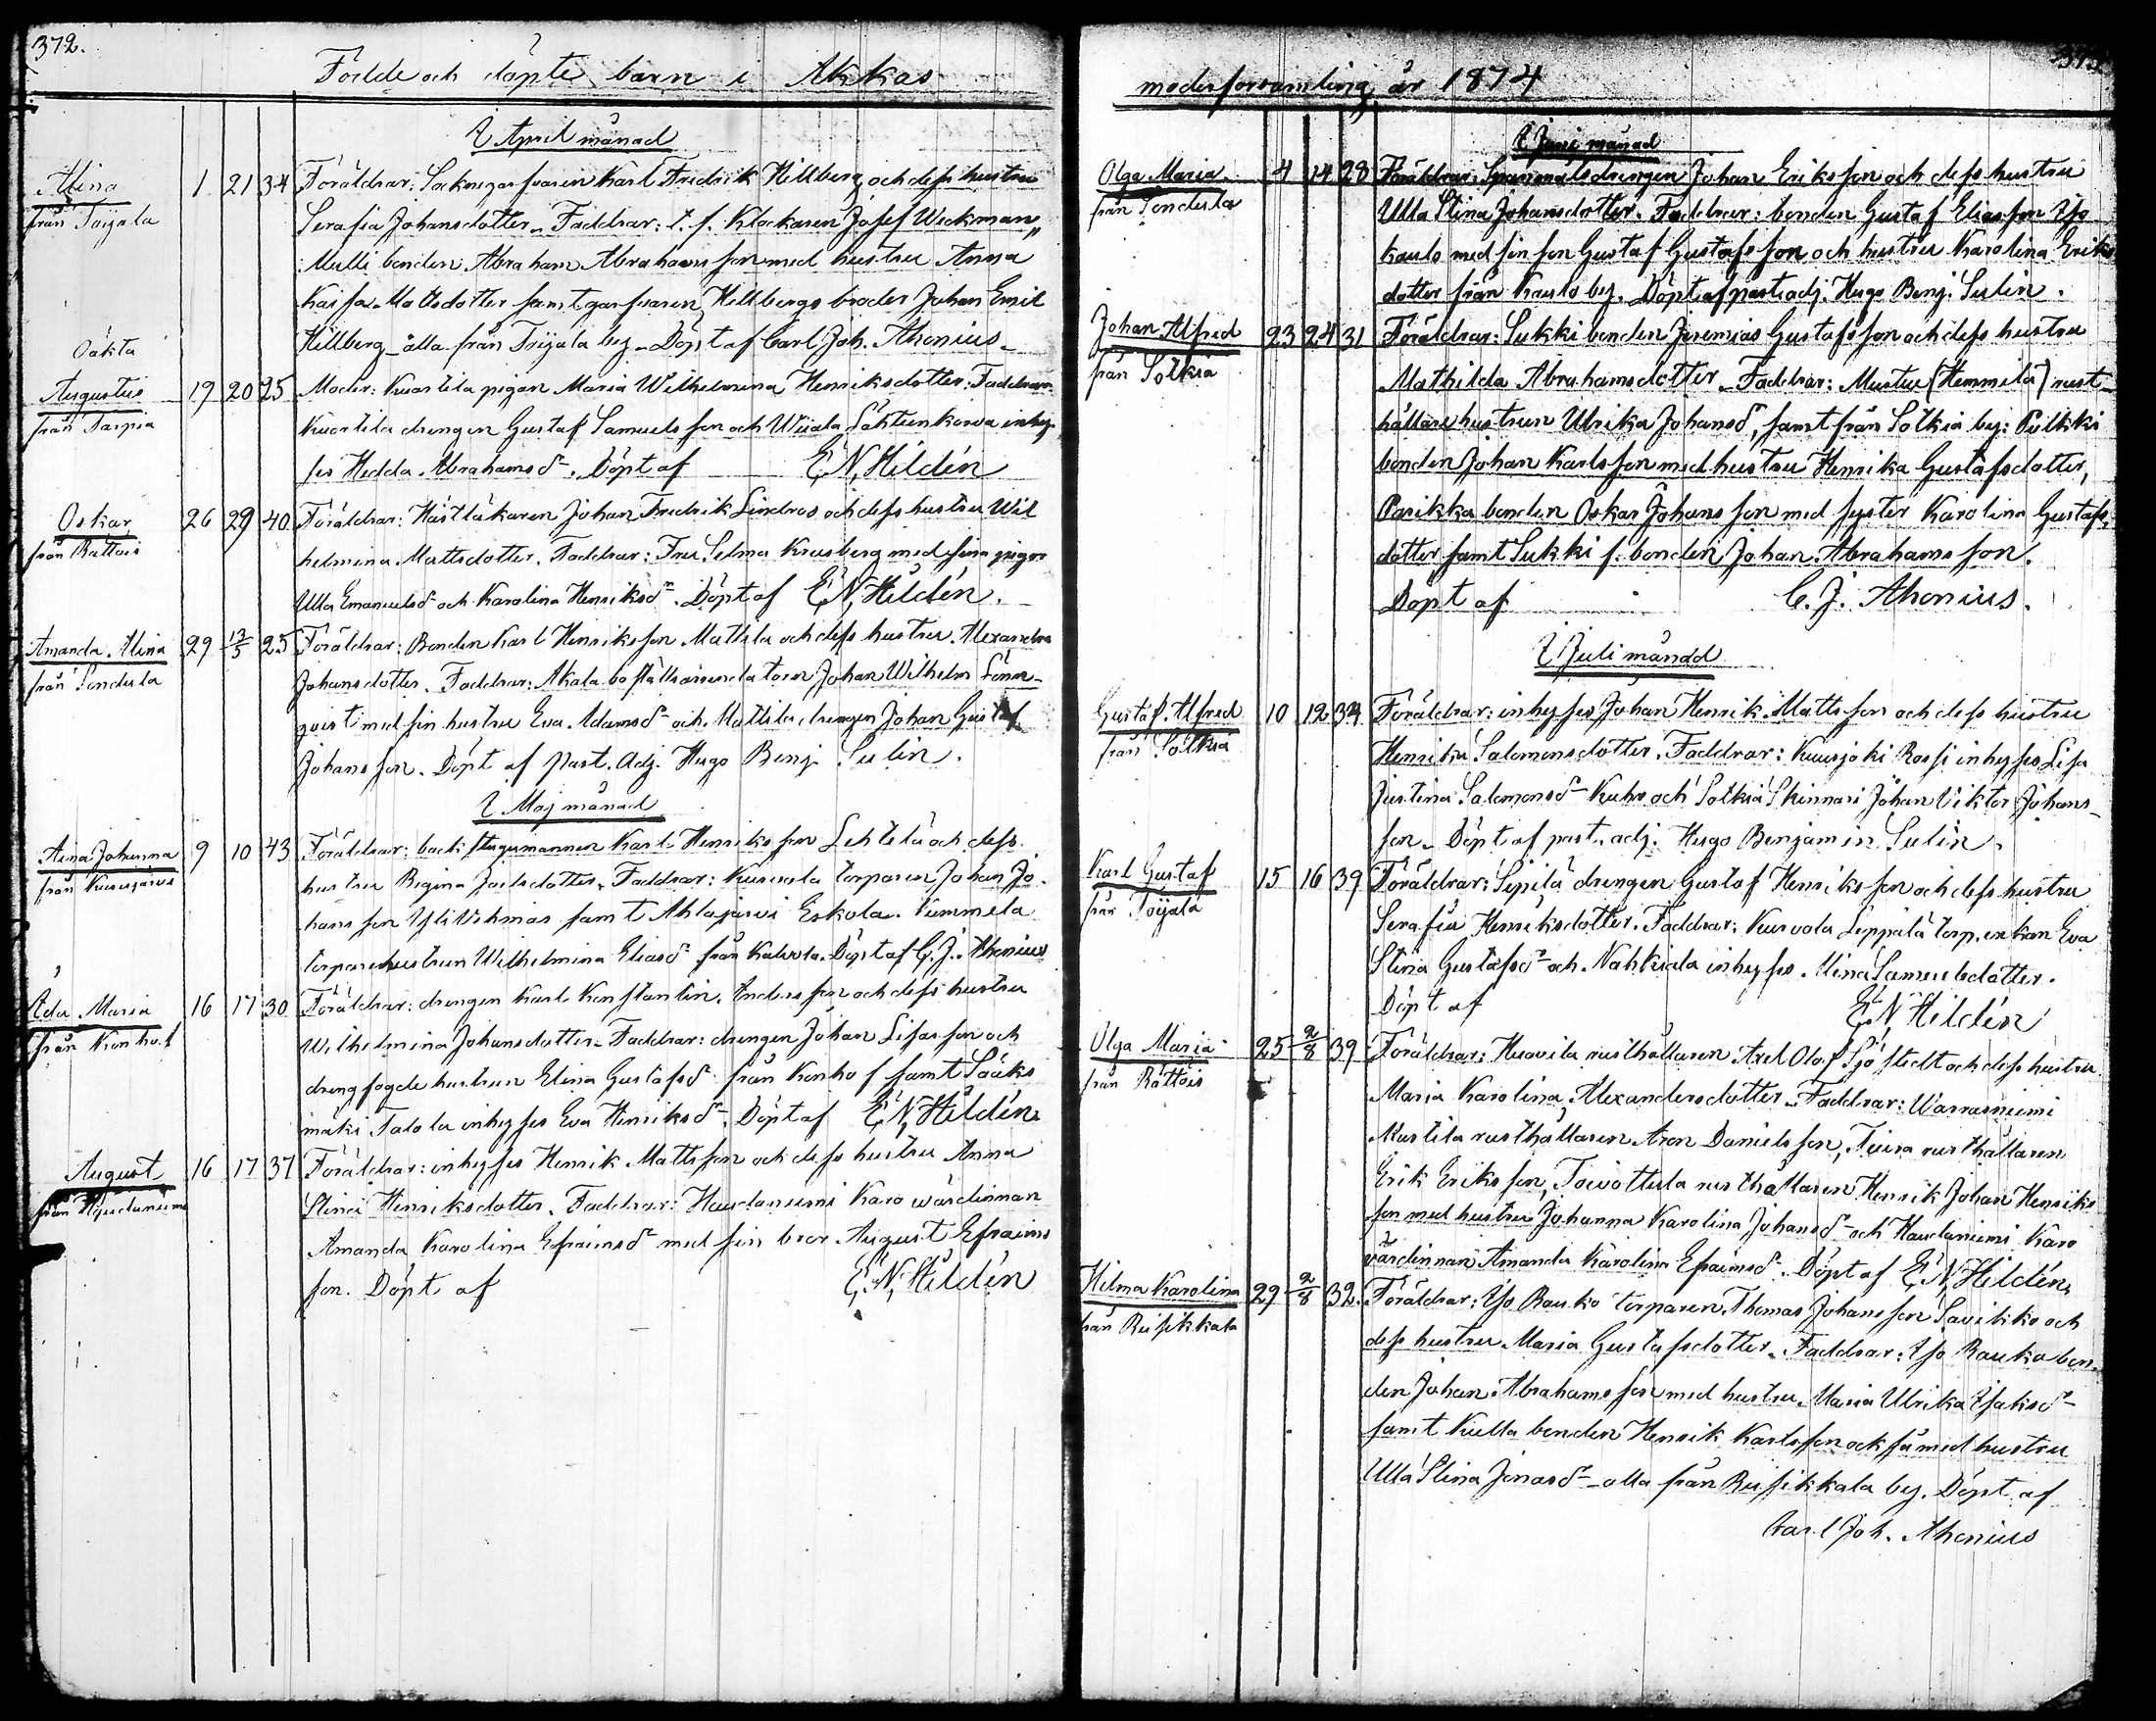 372.
Födde och döpte barn i Akkas
I April månad
Alina 1 21 34 Föräldrar: Socknegarfvaren Karl Fredrik Hillberg och dess hustru
från Toijala Serafia Johansdotter. Faddrar: t. f. Klockaren Josef Weckman,
Mulli bonden Abraham Abrahamsson med hustru Anna
Kaisa Matsdotter samt garfvaren Hillbergs broder Johan Emil
Hillberg alla från Toijala by. Döpt af Carl Joh. Ahonius.
Oäkta
Augustus 19 20 25 Moder: Kurtila pigan Maria Wilhelmina Henriksdotter. Faddrar:
från Tarpia Kurtila drengen Gustaf Samuelsson och
ses Hedda Abrahamsdr. Döpt af E. N. Hildén
Oskar 26 29 40 Föräldrar: Hästläkaren Johan Fredrik Lindros och dess hustru Wil
från Rattois helmina Mattsdotter. Faddrar: Fru Selma Krusberg med sina pigor
Ulla Emanuelsdr och Karolina Henriksdr. Döpt af E. N. Hildén.
Amanda Alina 29 12/5 25 Föräldrar: Bonden Karl Henriksson Mattila och dess hustru Alexandra
från Sondula Johansdotter. Faddrar: Akala boställsarrendatorn Johan Wilhelm Lönn-
qvist med sin hustru Eva Adamsdr och Mattila drengen Johan Gustaf
Johansson. Döpt af past. adj. Hugo Benj. Sulin.
I Maj månad
Aina Johanna 9 10 43 Föräldrar: backstugumannen Karl Henriksson Lehtelä och dess
från Kurisjärvi hustru Regina Joelsdotter. Faddrar: Kurvola torparen Johan Jo-
hansson Yli Wihmas samt Ahlajärvi Eskola Kummela
torparehustrun Wilhelmina Eliasdr från Kalvola. Döpt af C. J. Ahonius
Ada Maria 16 17 30 Föräldrar: drengen Karl Konstantin Andersson och dess hustru
från Konhof Wilhelmina Johansdotter. Faddrar: drengen Johan och
drengfogde hustrun Elina Gustafsdr från Konhof samt Sääks
mäki Talola inhyses Eva Henriksdr. Döpt af E. N. Hildén
August 16 17 37 Föräldrar: inhyses Henrik Mattsson och dess hustru Anna
från Haudaniemi Stina Henriksdotter. Faddrar: Haudaniemi Karo wärdinnan
Amanda Karolina Efraimsdr med sin bror August Efraims
son. Döpt af E. N. Hildén
moderforsamling år 1874
I Juni månad
Olga Maria 4 14 28 Föräldrar: Spannmålsdrengen Johan Eriksson och dess hustru
från Sondula Ulla Stina Johansdotter. Faddrar: bonden Gustaf Eliasson Iso
kaulo med sin son Gustaf Gustafsson och hustru Karolina Eriks
dotter från Kaulo by. Döpt af past. adj. Hugo Benj. Sulin.
Johan Alfred 23 24 31 Föräldrar: Sukki bonden Jeremias Gustafsson och dess hustru
från Sotkia Mathilda Abrahamsdotter. Faddrar: Mustue (Hemmilä) rust-
hållarehustrun Ulrika Johansdr, samt från Sotkia by: Pulkki
bonden Johan Karlsson med hustru Henrika Gustafsdotter,
Parikka bonden Oskar Johansson med syster Karolina Gustafs-
dotter samt Sukki f. bonden Johan Abrahamsson.
Döpt af C. J. Ahonius.
I Juli månad
Gustaf Alfred 10 12 34 Föräldrar: inhyses Johan Henrik Mattsson och dess hustru
från Sotkia Henrika Salomonsdotter. Faddrar: Kuusjoki Rossi inhyses Lisa
Justina Salomonsdr Kuhr och Sotkia Skinnari Johan Viktor Johans-
son. Döpt af past. adj. Hugo Benjamin Sulin.
Karl Gustaf 15 16 39 Föräldrar: Sipilä drengen Gustaf Henriksson och dess hustru
från Toijala Serafia Henriksdotter. Faddrar: Kurvola Leppälä torp. enkan Eva
Stina Gustafsdr och Nahkiala inhyses Mina Samuelsdotter.
Döpt af E. N. Hildén
Olga Maria 25 2/8 39 Föräldrar: Huovila rusthållaren Axel Olof Sjöstedt och dess hustru
från Rattois Maria Karolina Alexandersdotter. Faddrar: Warrasniemi
Mustila rusthållaren Aron Danielsson, Tuira rusthållaren
Erik Eriksson, Toivottula rusthållaren Henrik Johan Henriks
son med hustru Johanna Karolina Johansdr och Haudaniemi Karo
värdinnan Amanda Karolina Efraimsdr. Döpt af E. N. Hildén
Hilma Karolina 29 2/8 32. Föräldrar: Iso Rauko torparen Thomas Johansson Savikko och
från Risikkala dess hustru Maria Gustafsdotter. Faddrar: Iso Rauko bon-
den Johan Abrahamsson med hustru Maria Ulrika Isaksdr
samt Kulla bonden Henrik Karlsson också med hustru
Ulla Stina Jonasdr alla från Risikkala by. Döpt af
Carl Joh. Ahonius